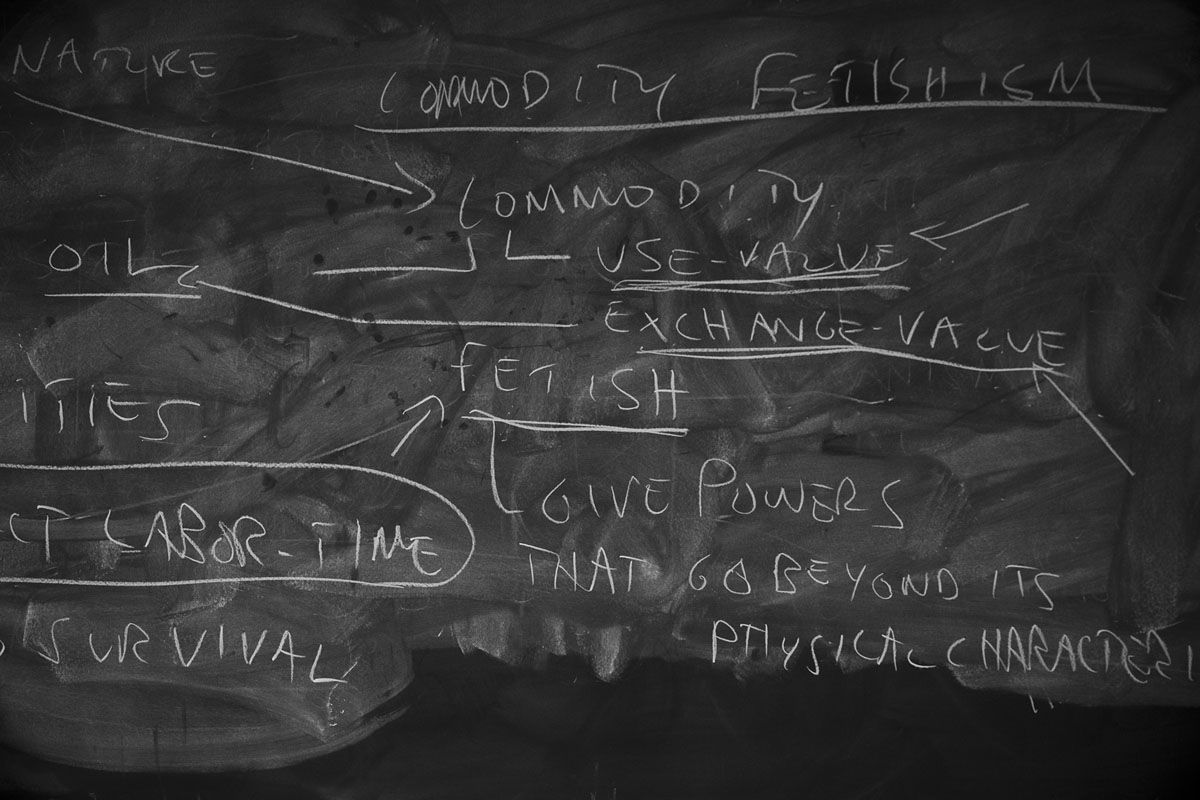 NATURE
COMMODITY FETISHISM
COMMODITY
USE-VALUE
OIL
EXCHANGE-VALUE
FETISH
ITIES
GIVE POWERS
CT LABOR-TIME
THAT GO BEYOND ITS
SURVIVAL
PHYSICAL CHARACTERI